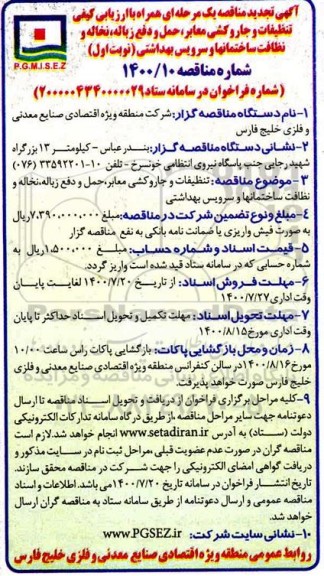 آگهی تجدید مناقصه یک مرحله ای همراه با ارزیابی کیفی
تنظیفات و جاروکشی معابر، حمل و دفع زباله، نخاله و
نظافت ساختمانها و سرویس بهداشتی (نوبت اول)
P.G.M.I.S.E.Z
شماره مناقصه ۱۴۰۰/۱۰
(شماره فراخوان در سامانه ستاد ۲۰۰۰۰۰۴۳۴۰۰۰۰۰۲۹)
۱-نام دستگاه مناقصه گزار: شرکت منطقه ویژه اقتصادی صنایع معدنی
و فلزی خلیج فارس
۲-نشانی دستگاه مناقصه گزار: بندرعباس - کیلومتر ۱۳ بزرگراه
شهید رجایی جنب پاسگاه نیروی انتظامی خونسرخ - تلفن ۱۰-۳۳۵۹۲۲۰۱ (۰۷۶)
۳- موضوع مناقصه: تنظیفات و جاروکشی معابر، حمل و دفع زباله، نخاله و
نظافت ساختمانها و سرویس بهداشتی
۴-مبلغ و نوع تضمین شرکت در مناقصه: مبلغ ۷،۳۹۰،۰۰۰،۰۰۰ ریال
به صورت فیش واریزی یا ضمانت نامه بانکی به نفع مناقصه گزار
۵- قیمت اسناد و شماره حساب: مبلغ ۱،۵۰۰،۰۰۰ ریال به
شماره حسابی که در سامانه ستاد قید شده است واریز گردد.
۶-مهلت فروش اسناد: از تاریخ ۱۴۰۰/۷/۲۰ لغایت پایان
وقت اداری ۱۴۰۰/۷/۲۷
۷-مهلت تحویل اسناد: مهلت تکمیل و تحویل اسناد حداکثر تا پایان
وقت اداری مورخ ۱۴۰۰/۸/۱۵
۸-زمان و محل بازگشایی پاکات: بازگشایی پاکات راس ساعت ۱۰/۰۰
مورخ ۱۴۰۰/۸/۱۶ در سالن کنفرانس منطقه ویژه اقتصادی صنایع معدنی و فلزی
خلیج فارس صورت خواهد پذیرفت.
۹-کلیه مراحل برگزاری فراخوان از دریافت و تحویل اسناد مناقصه تا ارسال
دعوتنامه جهت سایر مراحل مناقصه، از طریق درگاه سامانه تدارکات الکترونیکی
دولت (ستاد) به آدرس www.setadiran.ir انجام خواهد شد. لازم است
مناقصه گران در صورت عدم عضویت قبلی، مراحل ثبت نام در سایت مذکور و
دریافت گواهی امضای الکترونیکی را جهت شرکت در مناقصه محقق سازند.
تاریخ انتشار فراخوان در سامانه تاریخ ۱۴۰۰/۷/۲۰ می باشد. اطلاعات و اسناد
مناقصه عمومی و ارسال دعوتنامه از طریق سامانه ستاد به مناقصه گران ارسال
خواهد شد.
۱۰-نشانی سایت شرکت: www.PGSEZ.ir
روابط عمومی منطقه ویژه اقتصادی صنایع معدنی و فلزی خلیج فارس